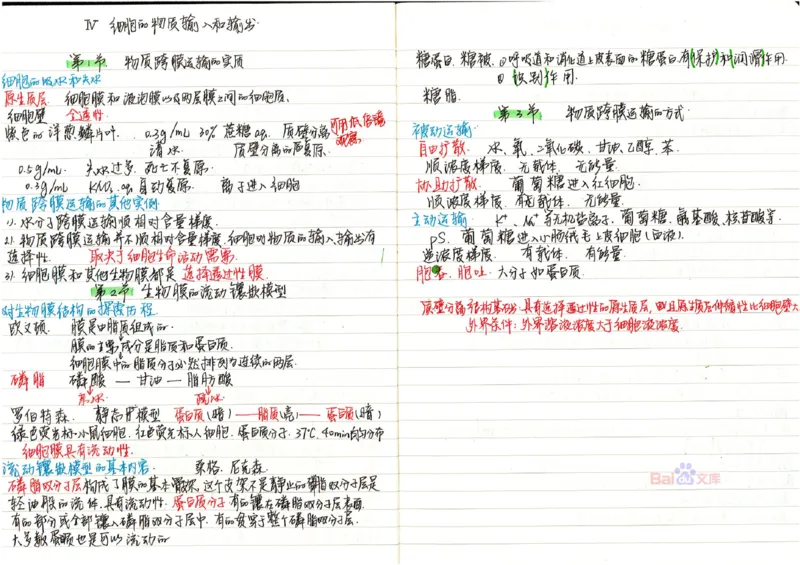 Ⅳ 细胞的物质输入和输出
第1节 物质跨膜运输的实质
细胞的吸水和失水
原生质层 细胞膜和液泡膜以及两层膜之间的细胞质。
细胞壁 全透性
紫色的洋葱鳞片叶. 0.3g/mL 30% 蔗糖aq. 质壁分离
清水. 质壁分离的复原.
可用低倍镜观察
0.5g/mL 失水过多, 死亡不复原.
0.3g/mL KNO₃ aq 自动复原. 离子进入细胞
物质跨膜运输的其他实例
1). 水分子跨膜运输顺相对含量梯度.
2). 物质跨膜运输并不顺相对含量梯度, 细胞对物质的输入、输出有
选择性. 取决于细胞生命活动需要.
3). 细胞膜和其他生物膜都是选择透过性膜.
第2节 生物膜的流动镶嵌模型
对生物膜结构的探索历程
欧文顿. 膜是由脂质组成的.
膜的主要成分是脂质和蛋白质.
细胞膜中的脂质分子必然排列为连续的两层.
磷脂 磷酸 — 甘油 — 脂肪酸
亲水 疏水
罗伯特森. 静态模型 蛋白质(暗)——脂质(亮)——蛋白质(暗)
绿色荧光标小鼠细胞. 红色荧光标人细胞. 蛋白质分子. 37℃. 40min均匀分布
细胞膜具有流动性.
流动镶嵌模型的基本内容. 桑格. 尼克森.
磷脂双分子层构成了膜的基本骨架, 这个支架不是静止的. 磷脂双分子层是
轻油般的流体. 具有流动性. 蛋白质分子有的镶在磷脂双分子层表面.
有的部分或全部镶入磷脂双分子层中. 有的贯穿于整个磷脂双分子层.
大多数蛋白质也是可以流动的
糖蛋白. 糖被. ①呼吸道和消化道上皮表面的糖蛋白有保护和润滑作用
② 识别作用.
糖脂.
第3节 物质跨膜运输的方式
被动运输
自由扩散. 水、氧、二氧化碳、甘油、乙醇、苯.
顺浓度梯度. 无载体. 无能量.
协助扩散. 葡萄糖进入红细胞.
顺浓度梯度. 有载体. 无能量.
主动运输. K⁺、Na⁺等无机盐离子. 葡萄糖、氨基酸、核苷酸等.
PS. 葡萄糖进入小肠绒毛上皮细胞(血液).
逆浓度梯度. 有载体. 有能量.
胞吞. 胞吐. 大分子如蛋白质.
质壁分离 结构基础: 具有选择透过性的原生质层, 且原生质层伸缩性比细胞壁大
外界条件: 外界溶液浓度大于细胞液浓度.
Baidu文库